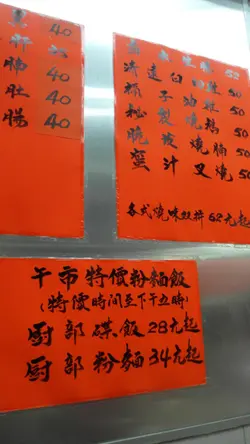 40
40
腩 40
肚 40
腸 40
50
清遠白切雞 50
桶子油雞 50
秘 燒鵝 50
脆皮燒腩 50
蜜汁叉燒 50
各式燒味双拼 62元起
午市特價粉麵飯
(特價時間至下午五時)
厨部碟飯28元起
厨部粉麵34元起